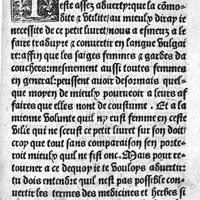 este assez aduerty: que la cõmo-
dite & vtilite/ au mieulx diray ie
necessite de ce petit liuret/ nous a esmeuz a le
faire traduyre & conuertir en langue vulgai
re: affin que les saiges femmes & gardes da
couchees: mesmement aussi toutes femmes
en general: peussent auoir desormais quel-
que moyen de mieulx pourueoir a leurs af
faires que elles nont de coustume. Et a la
mienne volunte quil ny eust femme en ceste
ville qui ne sceust ce petit liuret sur son doit/
crop que tout sans comparaison sen porte-
roit mieulx quil ne fist onc. Mais pour re-
tourner a ce dequoy ie te voulops aduertir:
tu dois entendre quil nest pas possible con-
uertir les termes des medicines et herbes si